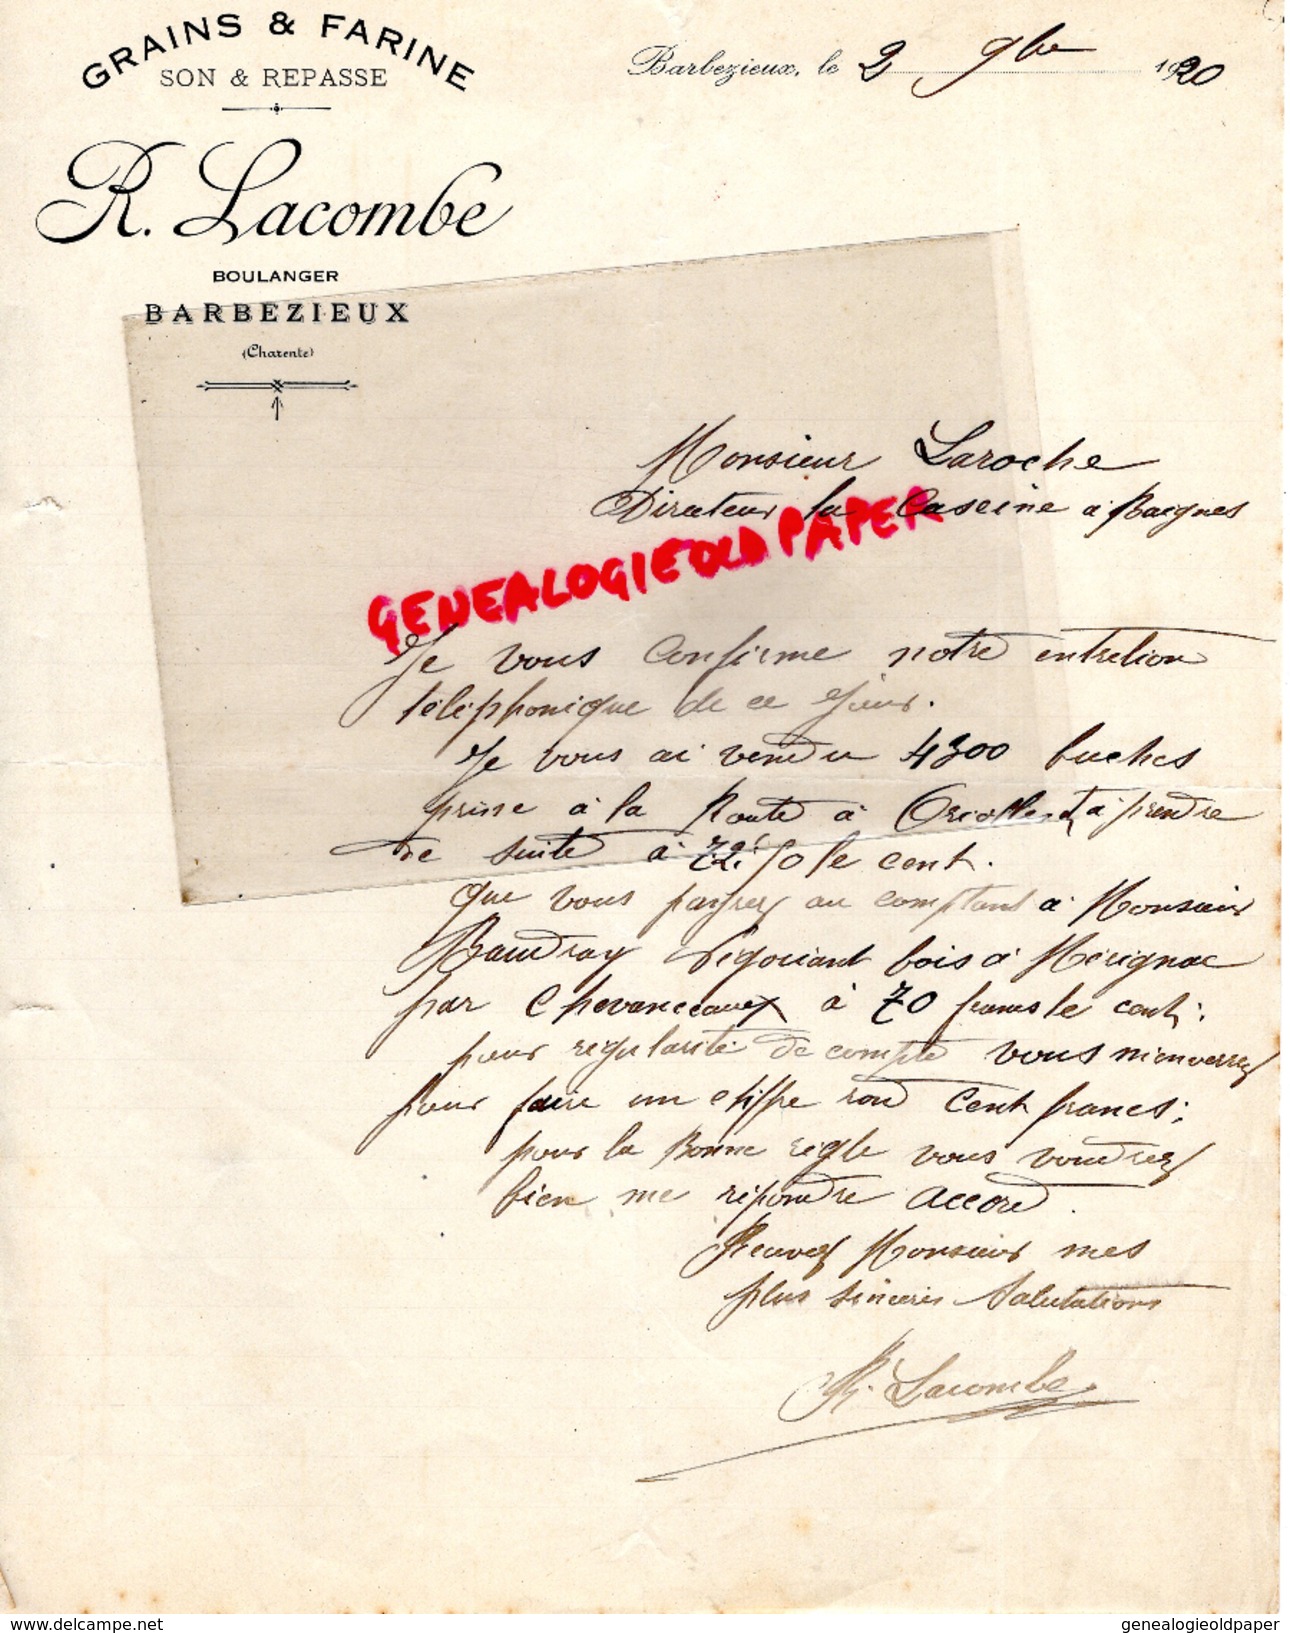 GRAINS & FARINE
SON & REPASSE
Barbezieux, le 2 9bre 1920
R. Lacombe
BOULANGER
BARBEZIEUX
(Charente)
Monsieur Laroche
Directeur la Caseine à Baignes
GENEALOGIE OLD PAPER
Je vous confirme notre entretion
téléphonique de ce jour.
Je vous ai vendu 4300 buches
prise à la Route à Oriolles et à prendre
de suite à 72f50 le cent.
que vous payrez au comptant à Monsieur
Baudray Négociant bois à Mérignac
par Chevanceaux à 70 francs le cent;
pour regularité de compte vous m'enverrez
pour faire un chiffre rond Cent francs;
pour la Bonne règle vous voudrez
bien me répondre accord.
Recevez Monsieur mes
plus sincères Salutations
R. Lacombe
www.delcampe.net
genealogieoldpaper